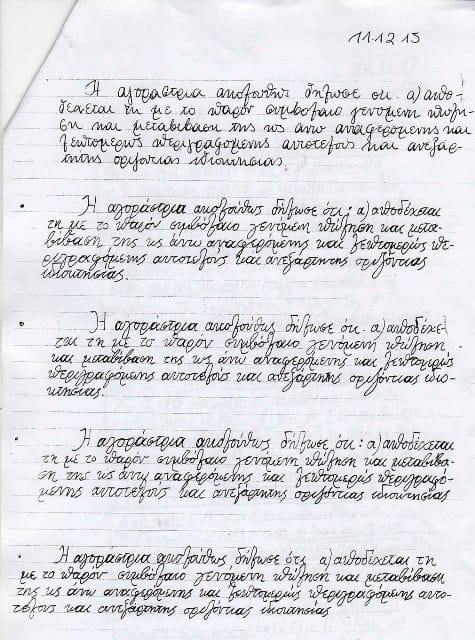 11.12.13
Η αγοράστρια ακολούθως δήλωσε οτι. α) απο-
δέχεται τη με το παρόν συμβόλαιο γενομενη πώλη-
ση και μεταβιβαση της ως άνω αναφερόμενης και
λεπτομερώς περιγραφομενης αυτοτελούς και ανεξάρ-
τητης οριζοντιας ιδιοκτησιας.
Η αγοράστρια ακολούθως δήλωσε ότι: α) αποδέχεται
τη με το παρόν συμβόλαιο γενόμενη πώληση και μετα-
βίβαση της ως άνω αναφερόμενης και λεπτομερώς πε-
ριγραφόμενης αυτοτελούς και ανεξάρτητης οριζόντιας
ιδιοκτησίας.
Η αγοράστρια ακολούθως δήλωσε ότι. α) αποδέχε-
ται τη με το παρόν συμβόλαιο γενόμενη πώληση
και μεταβίβαση της ως άνω αναφερόμενης και λεπτομερώς
περιγραφόμενης αυτοτελούς και ανεξάρτητης οριζόντιας ιδιο-
κτησίας.
Η αγοράστρια ακολούθως δήλωσε ότι: α) αποδέχεται
τη με το παρόν συμβόλαιο γενόμενη πώληση και μεταβίβα-
ση της ως άνω αναφερόμενης και λεπτομερώς περιγραφό-
μενης αυτοτελούς και ανεξάρτητης οριζόντιας ιδιοκτησίας
Η αγοράστρια ακολούθως δήλωσε ότι α) αποδέχεται τη
με το παρόν συμβόλαιο γενομενη πώληση και μεταβίβαση
της ως άνω αναφερόμενης και λεπτομερώς περιγραφόμενης αυτο-
τελους και ανεξάρτητης οριζόντιας ιδιοκτησίας